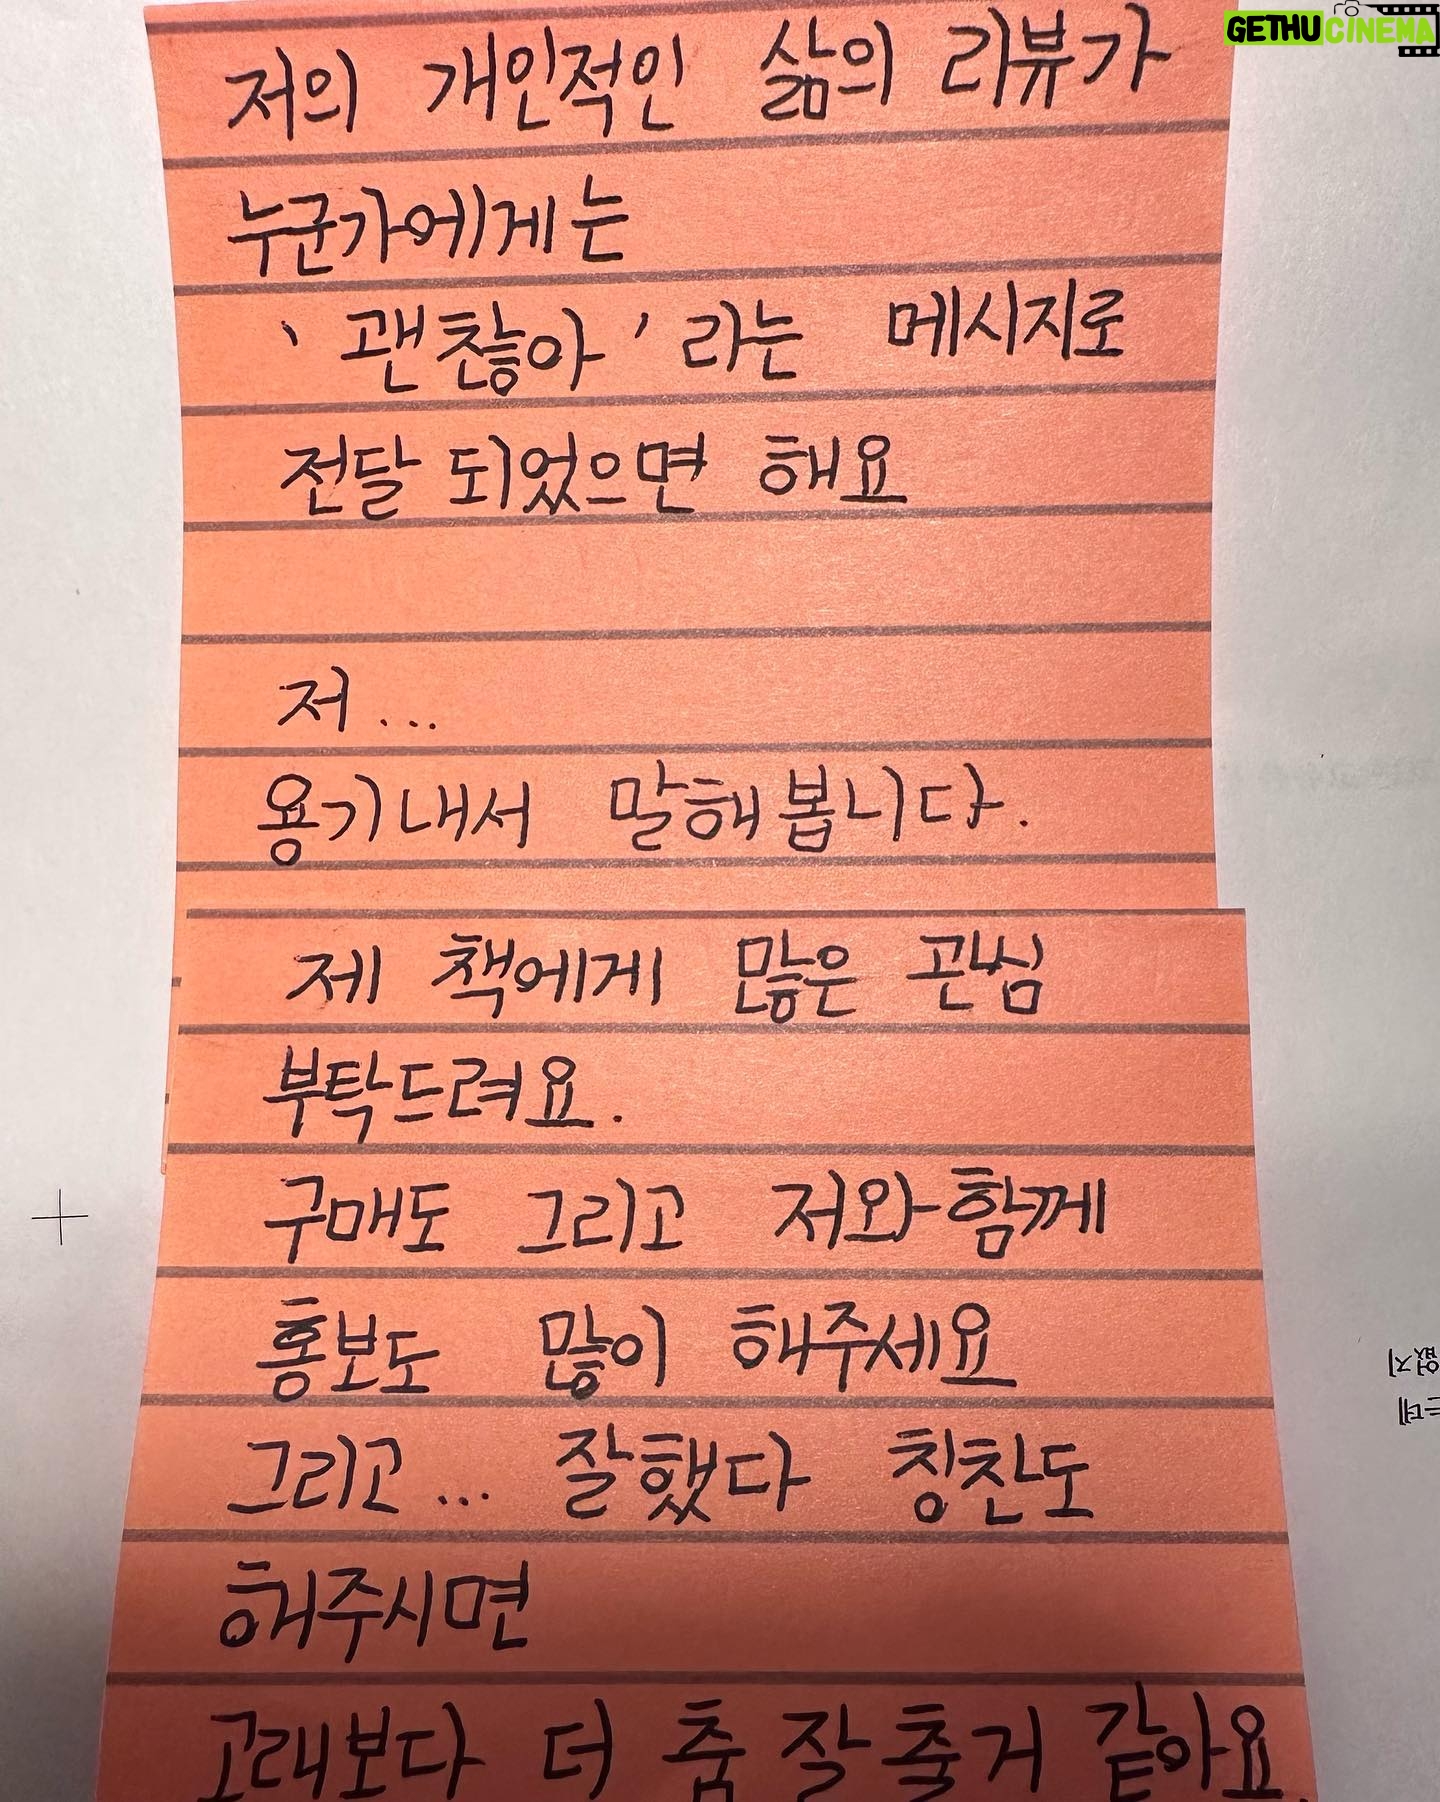 GETHUCINEMA
저의 개인적인 삶의 리뷰가
누군가에게는
'괜찮아' 라는 메시지로
전달 되었으면 해요
저...
용기내서 말해봅니다.
제 책에게 많은 관심
부탁드려요.
구매도 그리고 저와 함께
홍보도 많이 해주세요
그리고... 잘했다 칭찬도
해주시면
고래보다 더 춤 잘 출거 같아요.